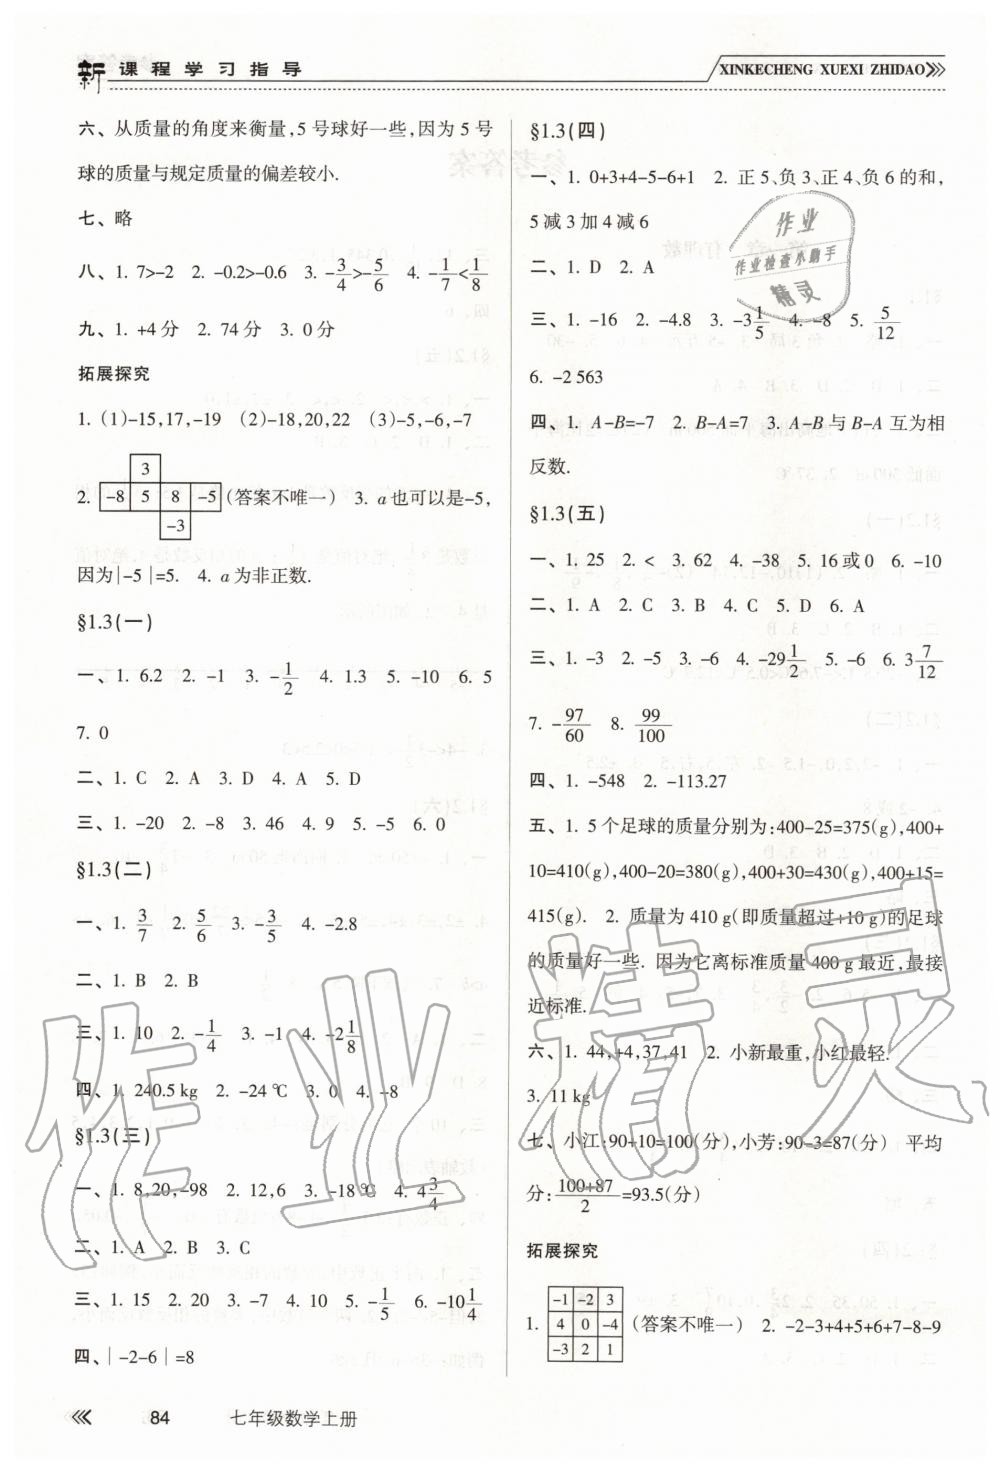 新课程学习指导
XINKECHENG XUEXI ZHIDAO
六、从质量的角度来衡量,5 号球好一些,因为 5 号
球的质量与规定质量的偏差较小.
七、略
八、1. 7>-2 2. -0.2>-0.6 3. -3/4>-5/6 4. -1/7<1/8
九、1. +4分 2. 74分 3. 0分
拓展探究
1. (1)-15,17,-19 (2)-18,20,22 (3)-5,-6,-7
3
2. -8 5 8 -5 (答案不唯一) 3. a也可以是-5,
-3
因为|-5|=5. 4. a为非正数.
§1.3(一)
一、1. 6.2 2. -1 3. -1/2 4. 1.3 5. -10 6. 5
7. 0
二、1. C 2. A 3. D 4. A 5. D
三、1. -20 2. -8 3. 46 4. 9 5. -5 6. 0
§1.3(二)
一、1. 3/7 2. 5/6 3. -3/5 4. -2.8
二、1. B 2. B
三、1. 10 2. -1/4 3. -1 4. -2 1/8
四、1. 240.5 kg 2. -24 ℃ 3. 0 4. -8
§1.3(三)
一、1. 8,20,-98 2. 12,6 3. -18℃ 4. 4 3/4
二、1. A 2. B 3. C
三、1. 15 2. 20 3. -7 4. 10 5. -1/5 6. -10 1/4
四、|-2-6|=8
§1.3(四)
一、1. 0+3+4-5-6+1 2. 正5、负3、正4、负6的和,
5减3加4减6
二、1. D 2. A
三、1. -16 2. -4.8 3. -3 1/5 4. -8 5. 5/12
6. -2 563
四、1. A-B=-7 2. B-A=7 3. A-B与B-A互为相
反数.
§1.3(五)
一、1. 25 2. < 3. 62 4. -38 5. 16或0 6. -10
二、1. A 2. C 3. B 4. C 5. D 6. A
三、1. -3 2. -5 3. -6 4. -29 1/2 5. -6 6. 3 7/12
7. -97/60 8. 99/100
四、1. -548 2. -113.27
五、1. 5个足球的质量分别为:400-25=375(g),400+
10=410(g),400-20=380(g),400+30=430(g),400+15=
415(g). 2. 质量为410 g(即质量超过+10 g)的足球
的质量好一些. 因为它离标准质量400 g最近,最接
近标准.
六、1. 44,+4,37,41 2. 小新最重,小红最轻.
3. 11 kg
七、小江:90+10=100(分),小芳:90-3=87(分) 平均
分:(100+87)/2=93.5(分)
拓展探究
-1 -2 3
1. 4 0 -4 (答案不唯一) 2. -2-3+4+5+6+7-8-9
-3 2 1
84 七年级数学上册
作业
作业检查小助手
精灵
作业精灵